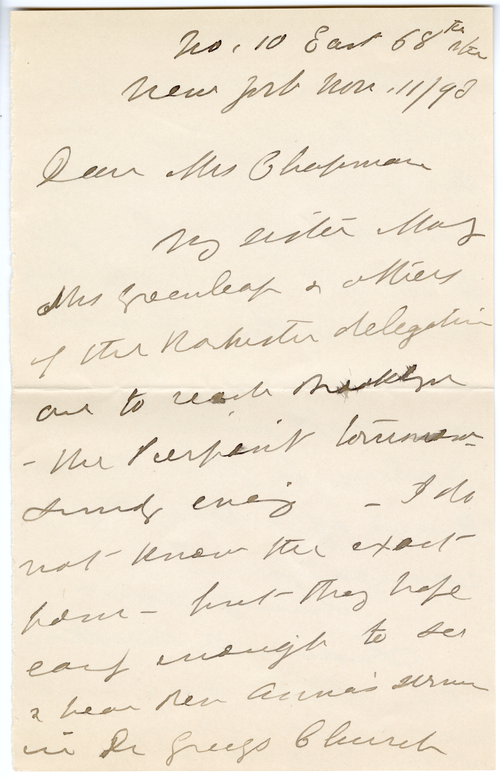 No. 10 East 68th St
New York Nov. 11/93
Dear Mrs Chapman
My sister Mary
Mrs Greenleaf & others
of the Rochester delegation
are to reach Brooklyn
- the Pierpoint tomorrow
Sunday evening - I do
not know the exact
hour - but they hope
early enough to see
& hear Rev Anna's sermon
in Dr Gregg's Church